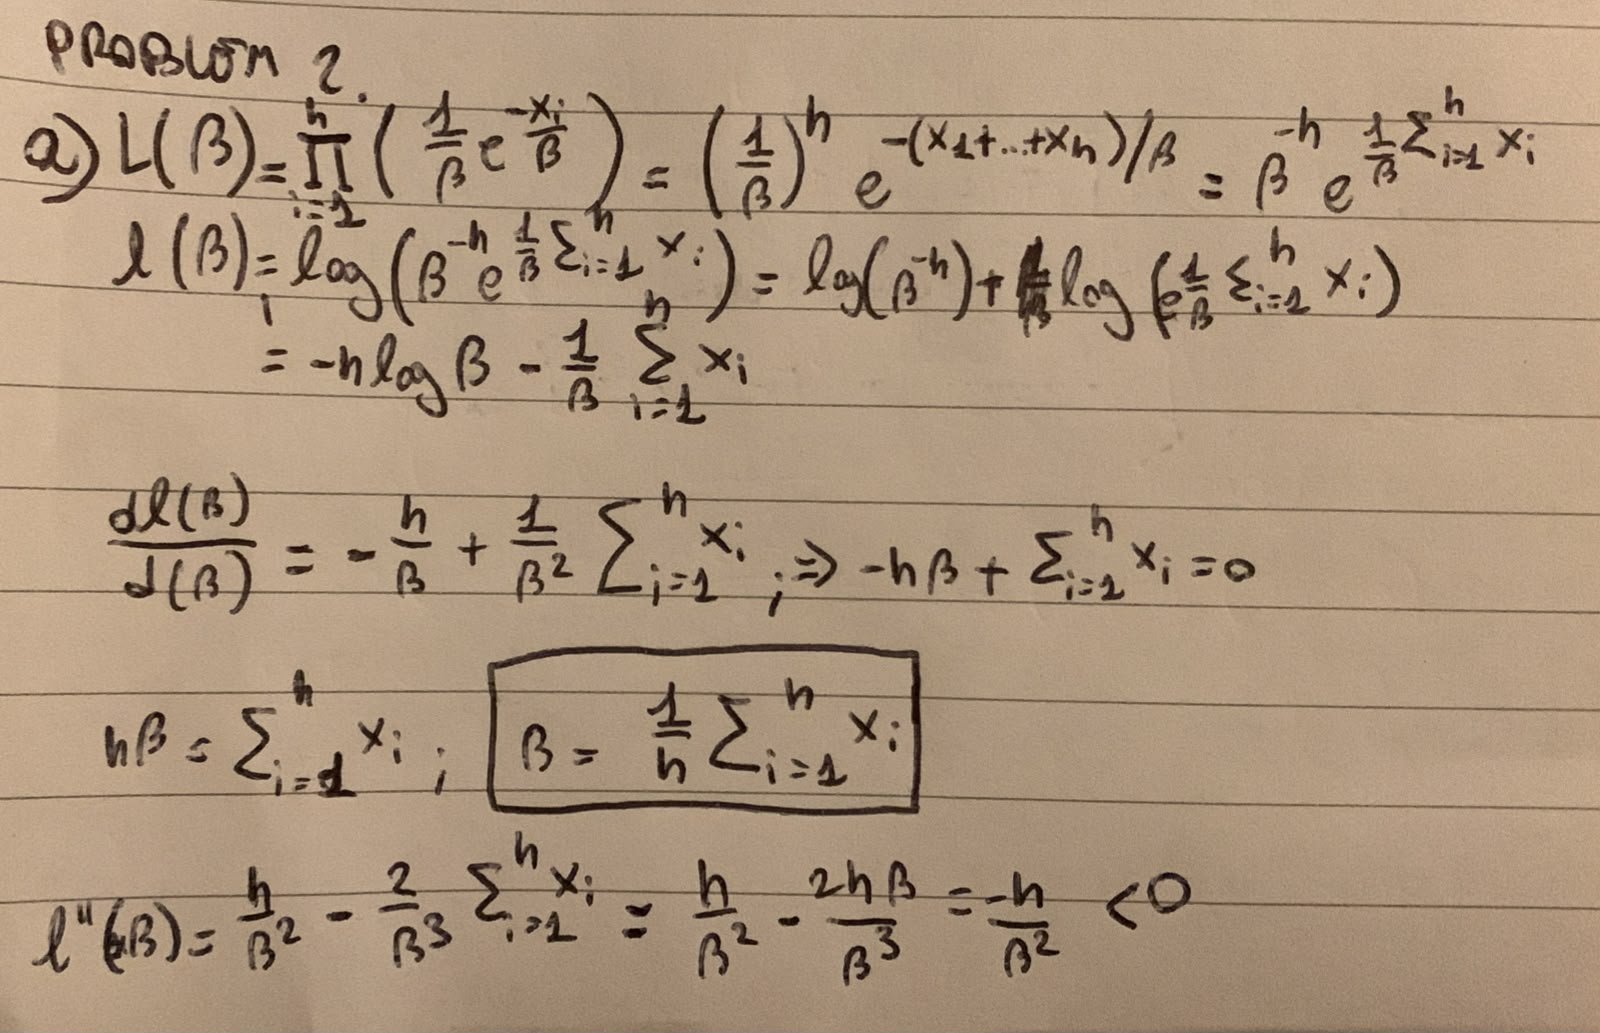 PROBLEM 2.
a) L(β) = ∏_{i=1}^{n} ( 1/β e^{-x_i/β} ) = (1/β)^n e^{-(x_1+...+x_n)/β} = β^{-n} e^{1/β ∑_{i=1}^{n} x_i}
l(β) = log(β^{-n} e^{1/β ∑_{i=1}^{n} x_i}) = log(β^{-n}) + log(e^{1/β ∑_{i=1}^{n} x_i})
= -n log β - 1/β ∑_{i=1}^{n} x_i
dl(β)/d(β) = -n/β + 1/β² ∑_{i=1}^{n} x_i ; ⇒ -nβ + ∑_{i=1}^{n} x_i = 0
nβ = ∑_{i=1}^{n} x_i ; β = 1/n ∑_{i=1}^{n} x_i
l''(β) = n/β² - 2/β³ ∑_{i=1}^{n} x_i = n/β² - 2nβ/β³ = -n/β² < 0